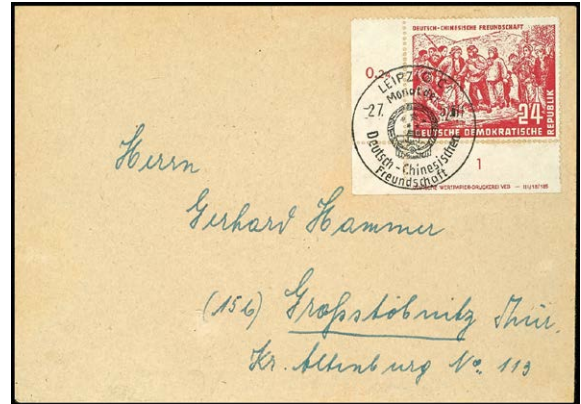 DEUTSCH-CHINESISCHE FREUNDSCHAFT
24
DEUTSCHE DEMOKRATISCHE
REPUBLIK
LEIPZIG
Monat der
27.
Deutsch-Chinesischen
Freundschaft
1
WERTPAPIER-DRUCKEREI VEB
Herrn
Gerhard Hammer
(15b) Großstöbnitz Thür.
Kr. Altenburg No. 113